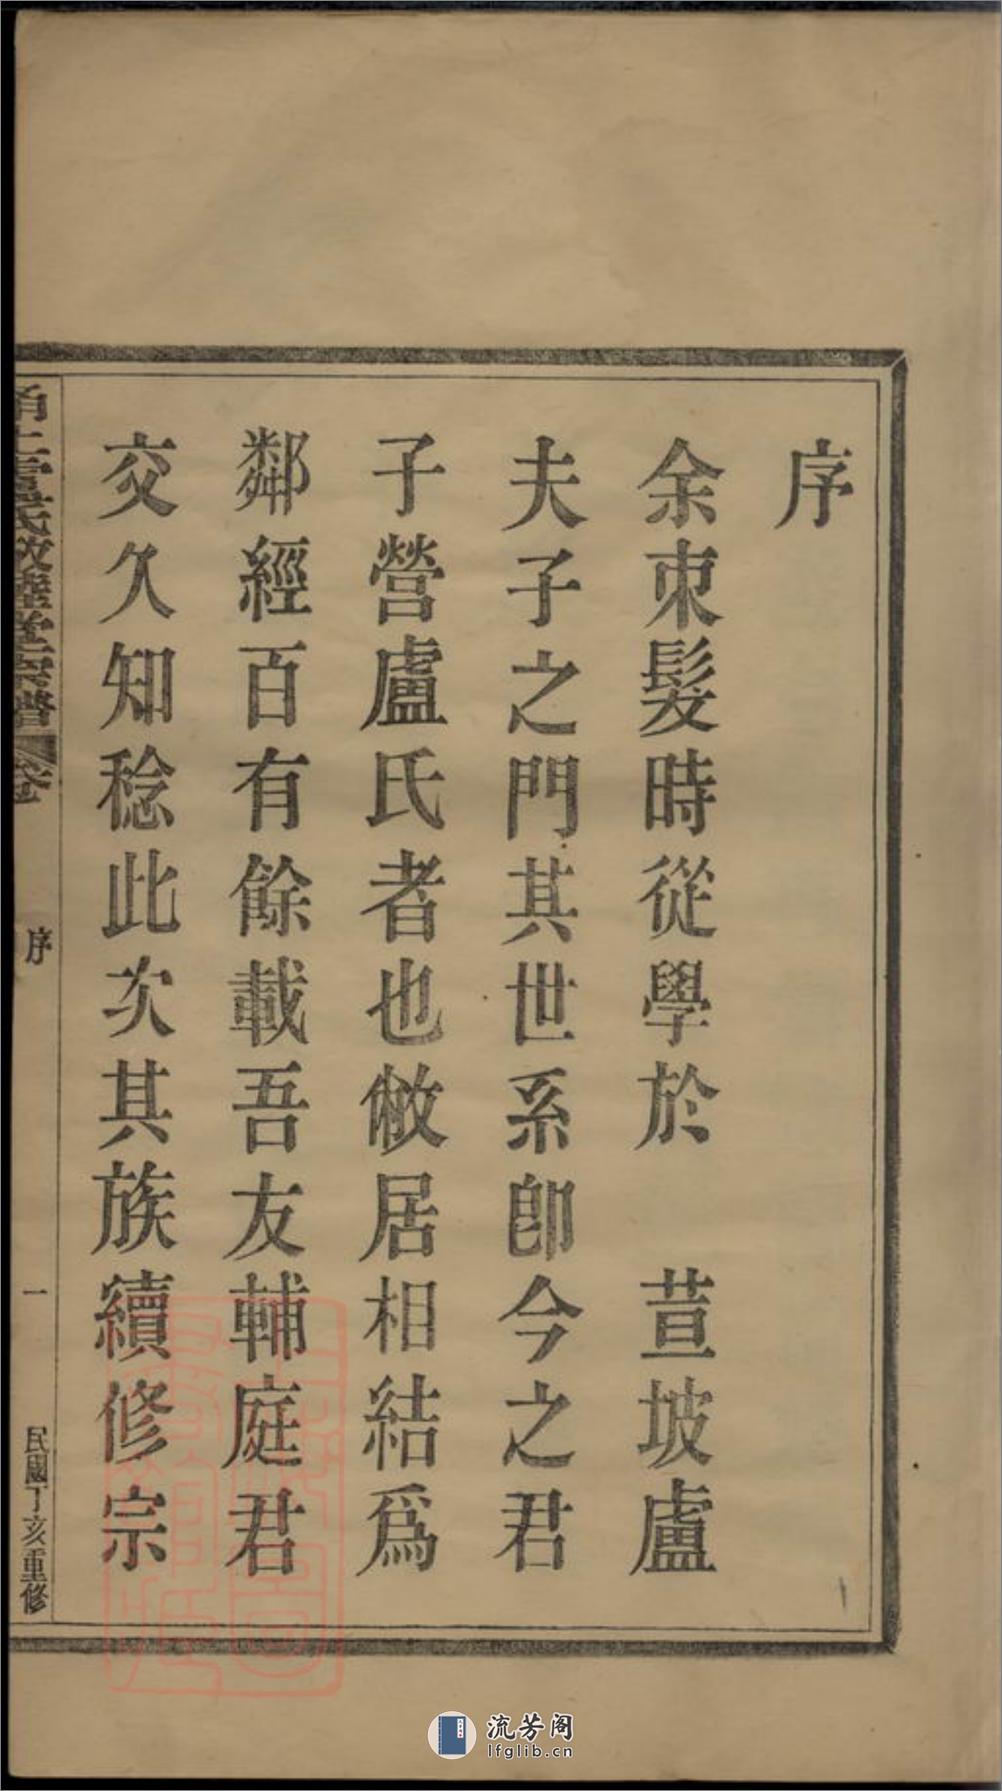 序
余朿髮時從學於　荁坡盧
夫子之門其世系卽今之君
子營盧氏者也敝居相結爲
鄰經百有餘載吾友輔庭君
交久知稔此次其族續修宗
甬上盧氏敬睦堂宗譜
序
一
民國丁亥重修
流芳阁
lfglib.cn